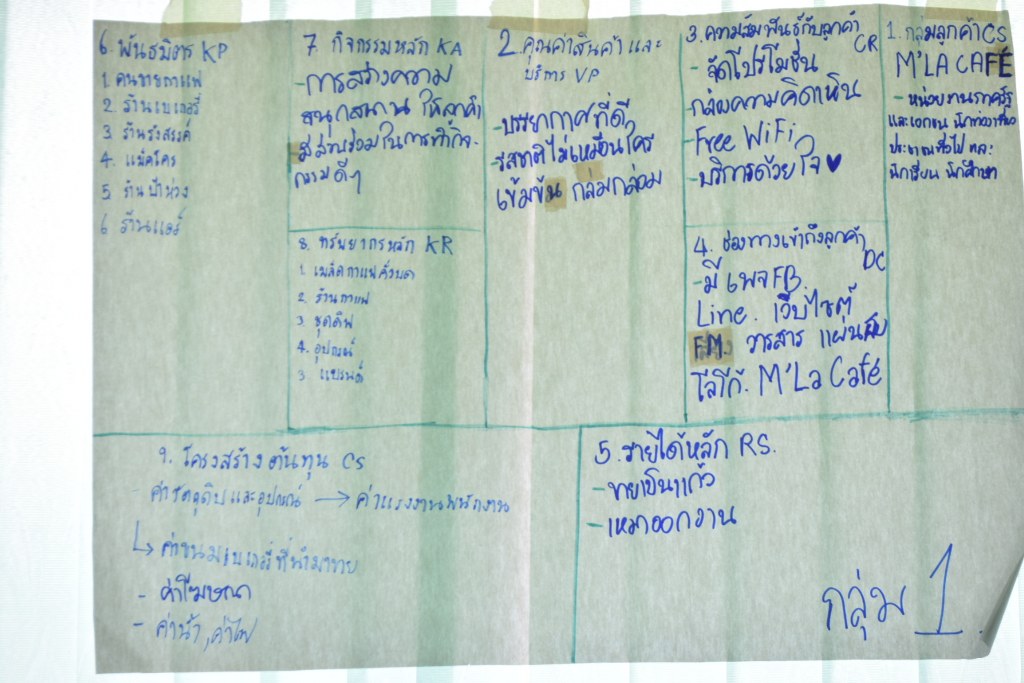 6. พันธมิตร KP
1. คนขายกาแฟ
2. ร้านเบเกอรี่
3. ร้านรังสรรค์
4. แม็คโคร
5. ร้านป้าห่วง
6 ร้านแอร์
7. กิจกรรมหลัก KA
- การสร้างความ
สนุกสนาน ให้ลูกค้า
มีส่วนร่วมในการทำกิจ-
กรรมดีๆ
8. ทรัพยากรหลัก KR
1. เมล็ดกาแฟคั่วบด
2. ร้านกาแฟ
3 ชุดดิฟ
4. อุปกรณ์
3. แบรนด์
2. คุณค่าสินค้า และ
บริการ VP
- บรรยากาศที่ดี
- รสชาติไม่เหมือนใคร
เข้มข้น กลมกล่อม
3. ความสัมพันธ์กับลูกค้า
CR
- จัดโปรโมชั่น
- กล่องความคิดเห็น
- Free WiFi
- บริการด้วยใจ ♥
4. ช่องทางเข้าถึงลูกค้า
DC
- มี เพจ FB
Line. เว็บไซต์
FM. วารสาร แผ่นพับ
โลโก้. M'La Café
1. กลุ่มลูกค้า CS
M'LA CAFÉ
- หน่วยงานภาครัฐ
และเอกชน นักท่องเที่ยว
ประชาชนทั่วไป และ
นักเรียน นักศึกษา
9. โครงสร้างต้นทุน CS
ค่าวัตถุดิบและอุปกรณ์ → ค่าแรงงานพนักงาน
↳ ค่าขนมเบเกอรี่ที่นำมาขาย
- ค่าโฆษณา
- ค่าน้ำ, ค่าไฟ
5. รายได้หลัก RS.
- ขายเป็นแก้ว
- เหมาออกงาน
กลุ่ม 1.